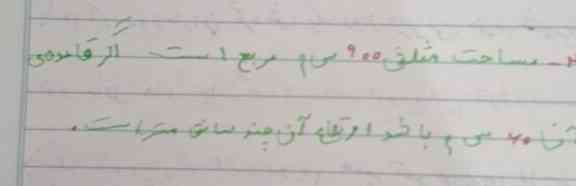 ۲- مساحت مثلثی ۹۰۰ س م مربع است اگر قاعده‌ی
آن ۶۰ س م باشد ارتفاع آن چند سانتی متر است.